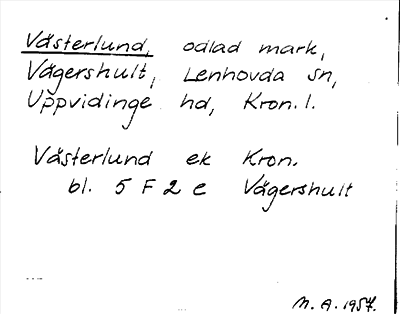 Västerlund, odlad mark,
Vägershult, Lenhovda sn,
Uppvidinge hd, Kron. l.
Västerlund ek Kron.
bl. 5 F 2 e Vägershult
M. A. 1957.